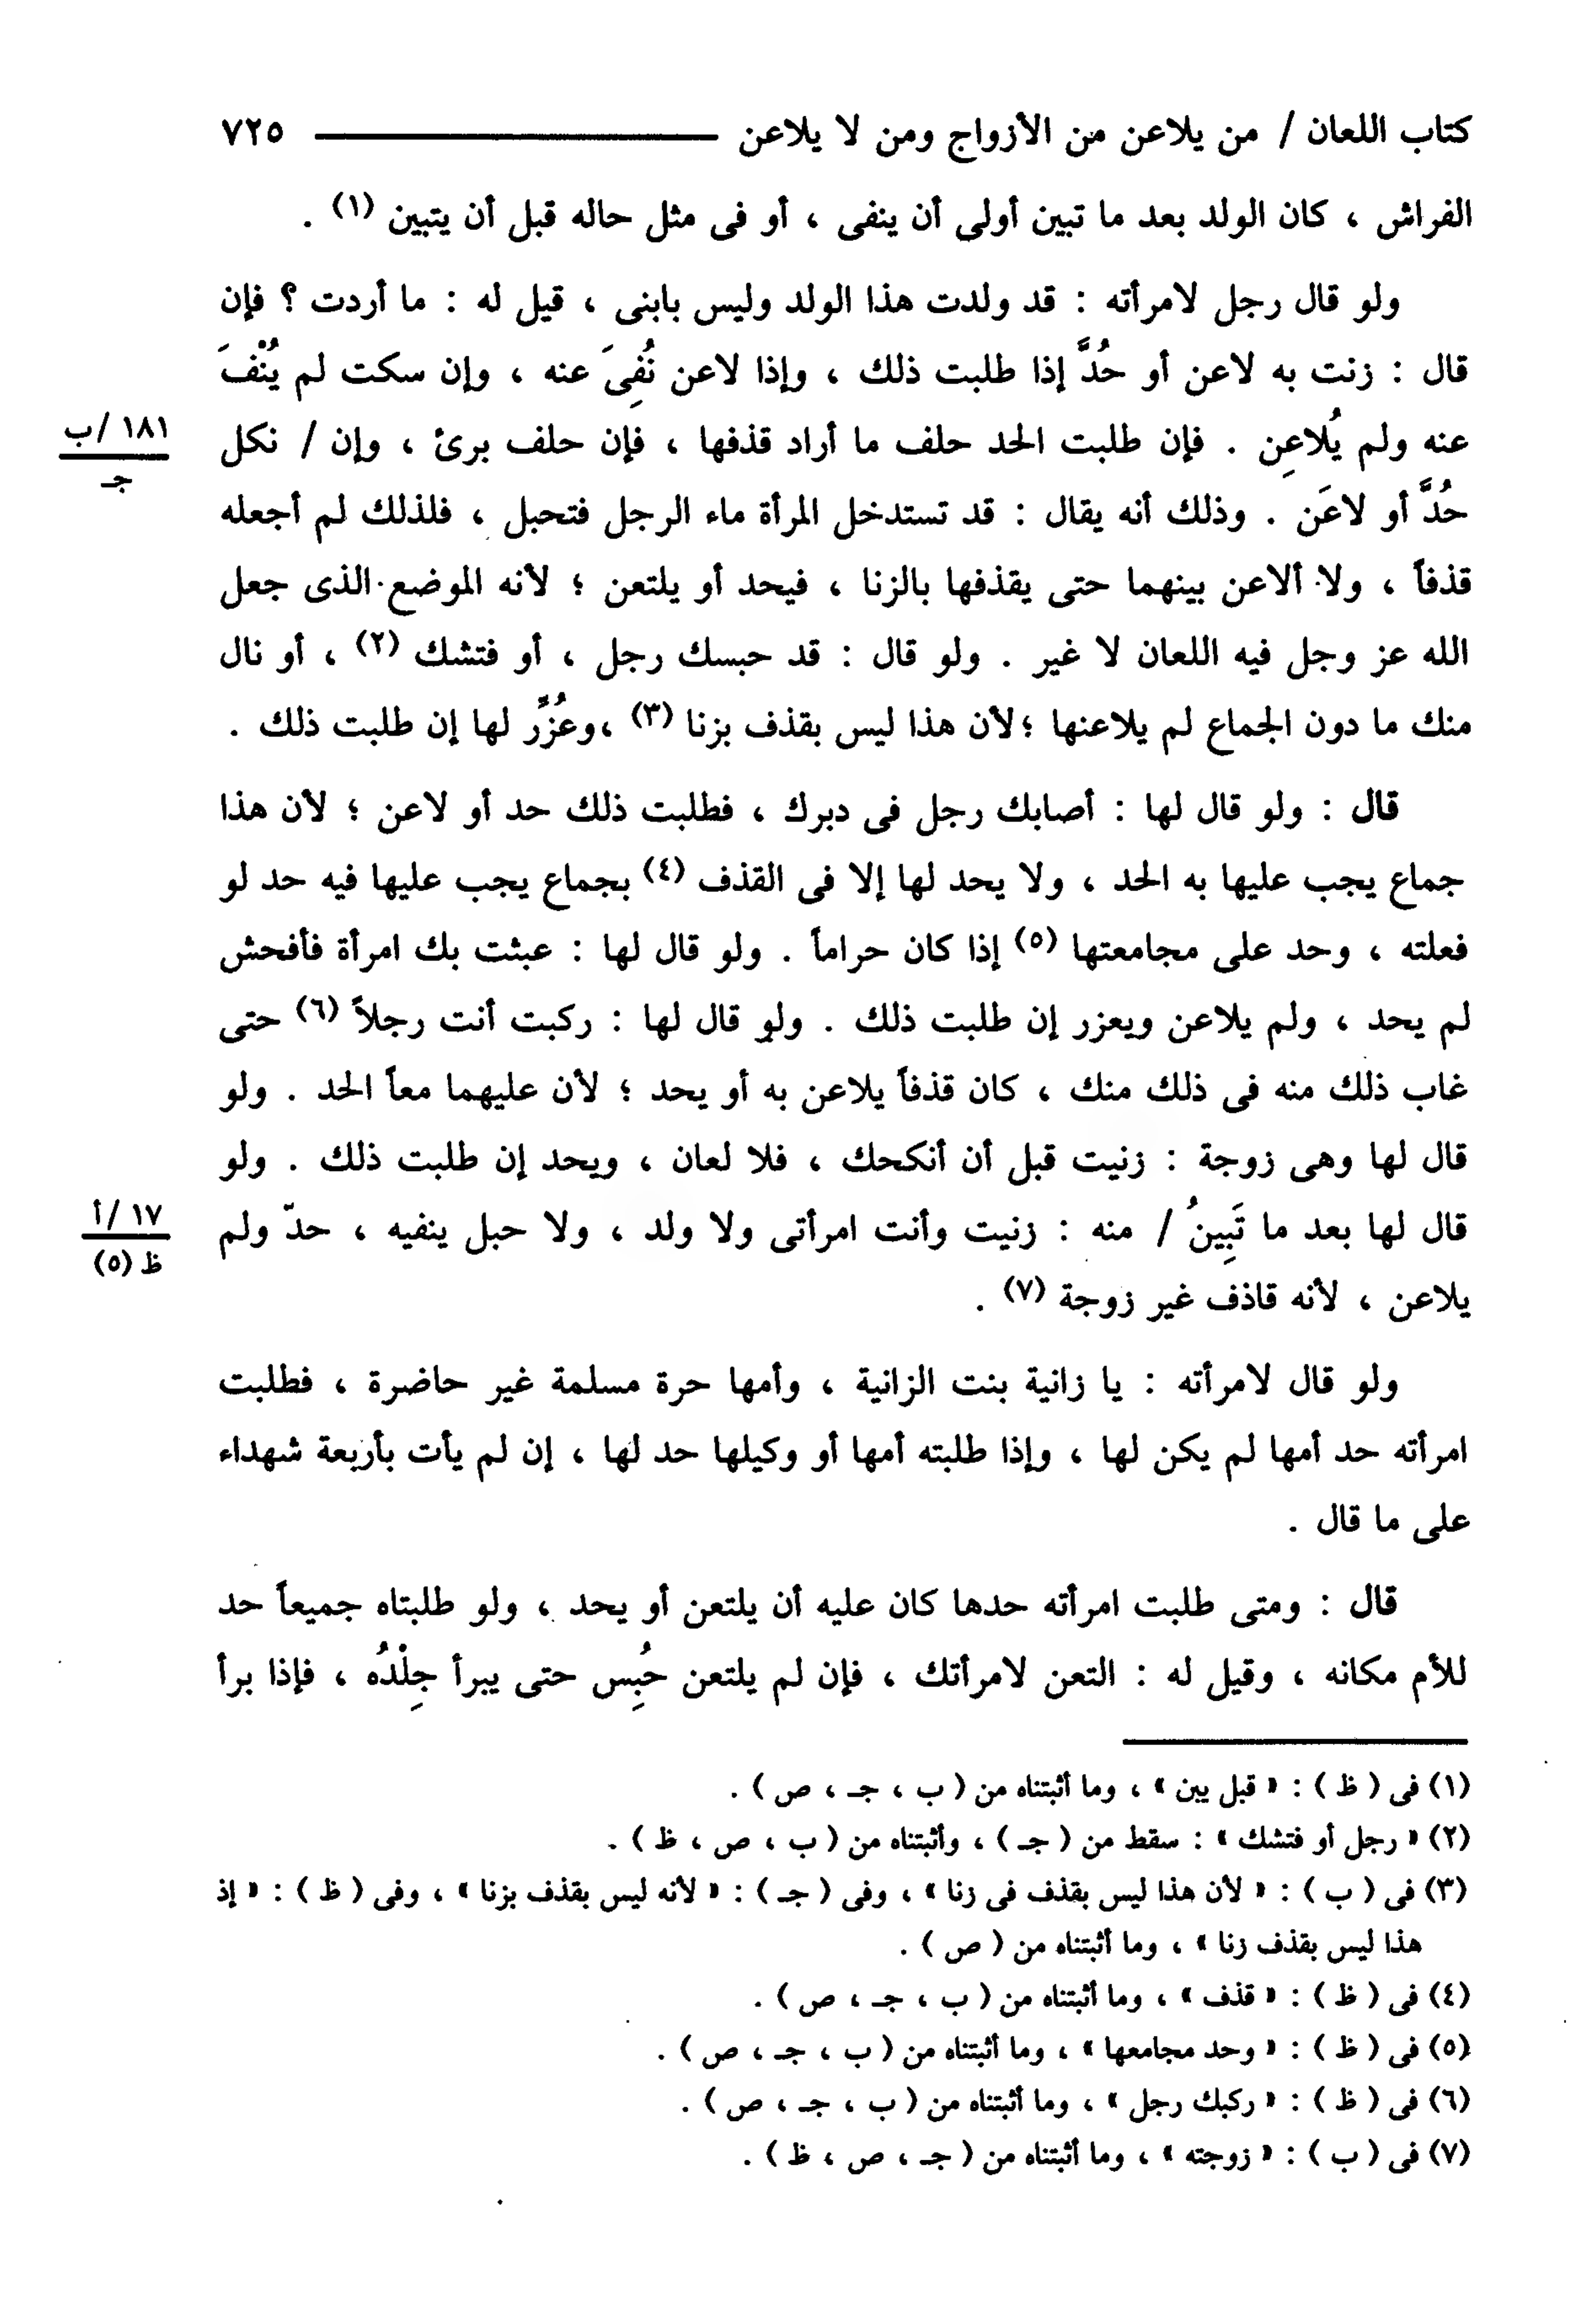 كتاب اللعان / من يلاعن من الأزواج ومن لا يلاعن ٧٢٥
الفراش ، كان الولد بعد ما تبين أولى أن ينفى ، أو فى مثل حاله قبل أن يتبين (١) .
ولو قال رجل لامرأته : قد ولدت هذا الولد وليس بابنى ، قيل له : ما أردت ؟ فإن
قال : زنت به لاعن أو حُدَّ إذا طلبت ذلك ، وإذا لاعن نُفِىَ عنه ، وإن سكت لم يُنْفَ
عنه ولم يُلاعِن . فإن طلبت الحد حلف ما أراد قذفها ، فإن حلف برئ ، وإن / نكل
١٨١ /ب
جـ
حُدَّ أو لاعَن . وذلك أنه يقال : قد تستدخل المرأة ماء الرجل فتحبل ، فلذلك لم أجعله
قذفاً ، ولا ألاعن بينهما حتى يقذفها بالزنا ، فيحد أو يلتعن ؛ لأنه الموضع الذى جعل
الله عز وجل فيه اللعان لا غير . ولو قال : قد حبسك رجل ، أو فتشك (٢) ، أو نال
منك ما دون الجماع لم يلاعنها ؛لأن هذا ليس بقذف بزنا (٣) ،وعُزِّر لها إن طلبت ذلك .
قال : ولو قال لها : أصابك رجل فى دبرك ، فطلبت ذلك حد أو لاعن ؛ لأن هذا
جماع يجب عليها به الحد ، ولا يحد لها إلا فى القذف (٤) بجماع يجب عليها فيه حد لو
فعلته ، وحد على مجامعتها (٥) إذا كان حراماً . ولو قال لها : عبثت بك امرأة فأفحش
لم يحد ، ولم يلاعن ويعزر إن طلبت ذلك . ولو قال لها : ركبت أنت رجلاً (٦) حتى
غاب ذلك منه فى ذلك منك ، كان قذفاً يلاعن به أو يحد ؛ لأن عليهما معاً الحد . ولو
قال لها وهى زوجة : زنيت قبل أن أنكحك ، فلا لعان ، ويحد إن طلبت ذلك . ولو
قال لها بعد ما تَبِينُ / منه : زنيت وأنت امرأتى ولا ولد ، ولا حبل ينفيه ، حدّ ولم
١٧ /أ
ظ (٥)
يلاعن ، لأنه قاذف غير زوجة (٧) .
ولو قال لامرأته : يا زانية بنت الزانية ، وأمها حرة مسلمة غير حاضرة ، فطلبت
امرأته حد أمها لم يكن لها ، وإذا طلبته أمها أو وكيلها حد لها ، إن لم يأت بأربعة شهداء
على ما قال .
قال : ومتى طلبت امرأته حدها كان عليه أن يلتعن أو يحد ، ولو طلبتاه جميعاً حد
للأم مكانه ، وقيل له : التعن لامرأتك ، فإن لم يلتعن حُبِس حتى يبرأ جِلْدُه ، فإذا برأ
(١) فى ( ظ ) : « قبل يبن » ، وما أثبتناه من ( ب ، جـ ، ص ) .
(٢) « رجل أو فتشك » : سقط من ( جـ ) ، وأثبتناه من ( ب ، ص ، ظ ) .
(٣) فى ( ب ) : « لأن هذا ليس بقذف فى زنا » ، وفى ( جـ ) : « لأنه ليس بقذف بزنا » ، وفى ( ظ ) : « إذ
هذا ليس بقذف زنا » ، وما أثبتناه من ( ص ) .
(٤) فى ( ظ ) : « قذف » ، وما أثبتناه من ( ب ، جـ ، ص ) .
(٥) فى ( ظ ) : « وحد مجامعها » ، وما أثبتناه من ( ب ، جـ ، ص ) .
(٦) فى ( ظ ) : « ركبك رجل » ، وما أثبتناه من ( ب ، جـ ، ص ) .
(٧) فى ( ب ) : « زوجته » ، وما أثبتناه من ( جـ ، ص ، ظ ) .